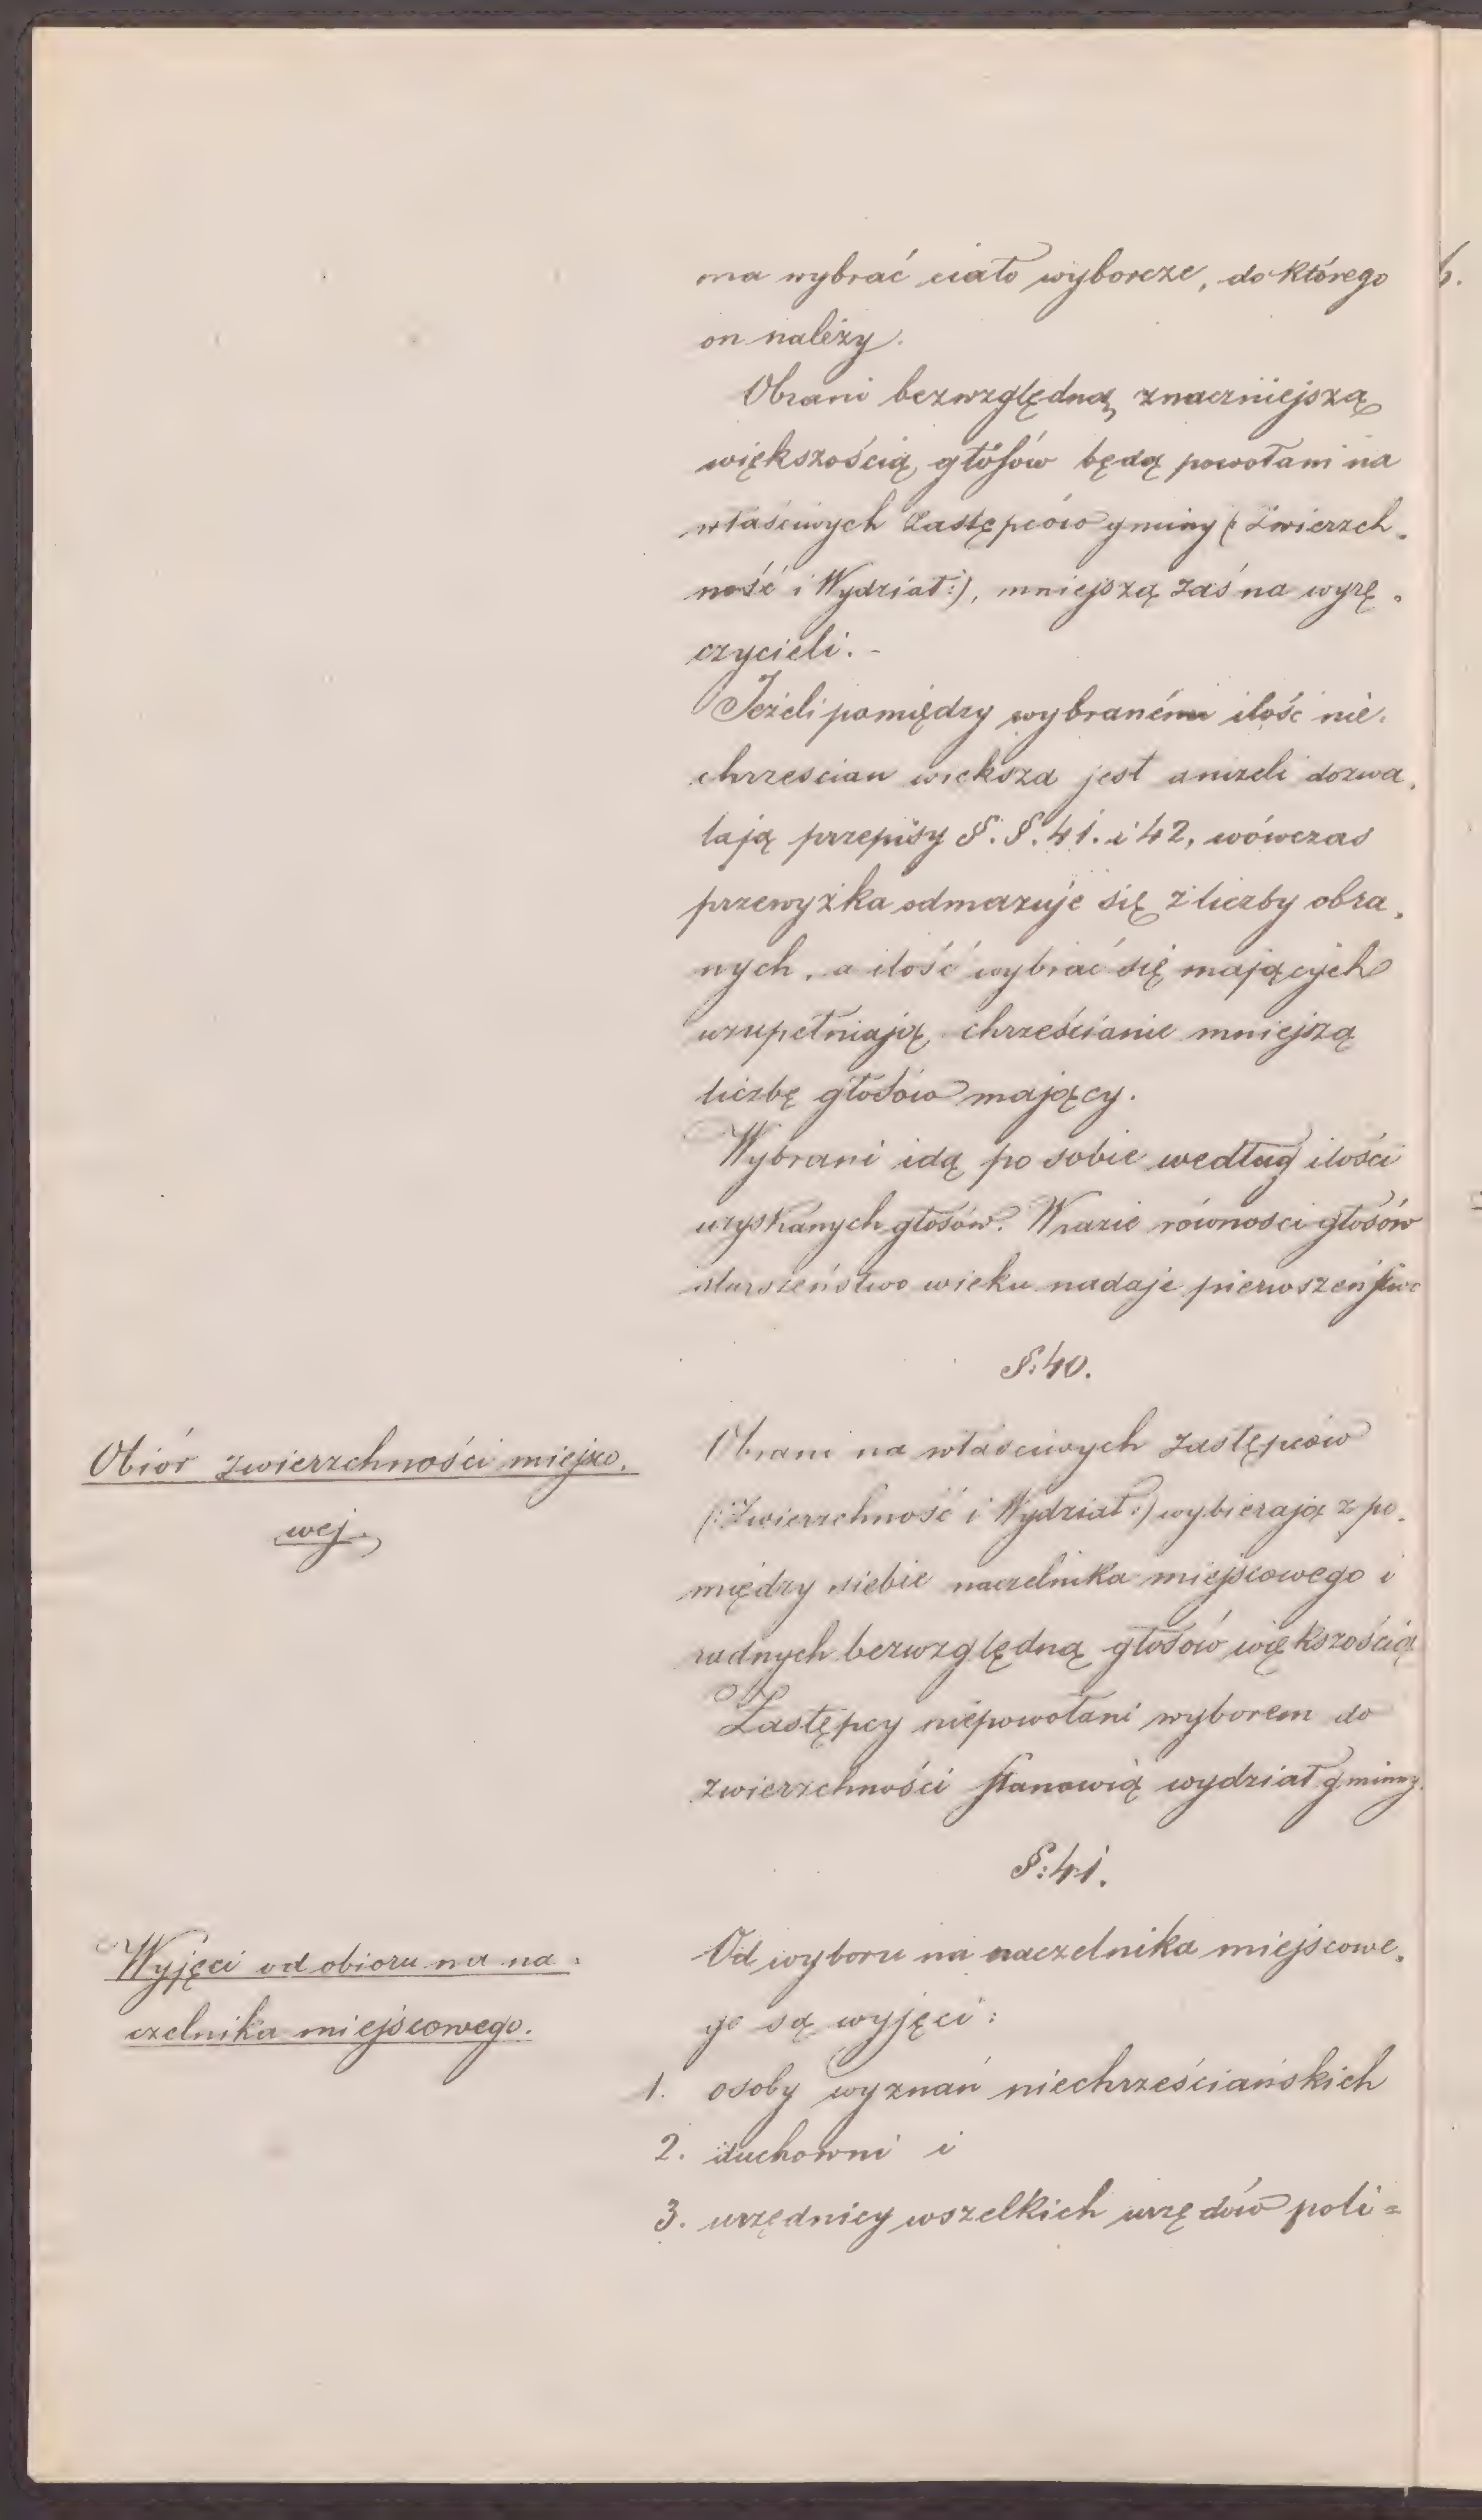 ma wybrać ciało wyborcze, do którego
on należy.
Obrani bezwzględną, znaczniejszą
większością głosów będą powołani na
właściwych Zastępców gminy (: Zwierzch.
ność i Wydział :), mniejszą zaś na wyrę.
czycieli. -
Jeżeli pomiędzy wybranémi ilość nie.
chrześcian wieksza jest aniżeli dozwa.
lają przepisy §. §. 41. i 42, wówczas
przewyżka odmazuje się z liczby obra.
nych, a ilość wybrać się mających
uzupełniają chrześcianie mniejszą
liczbę głosów mający.
Wybrani idą po sobie według ilości
uzyskanych głosów. W razie równości głosów
starszeństwo wieku nadaje pierwszeństwo
§: 40.
Obiór zwierzchności miejsco.
wej.
Obrani na właściwych zastępców
(: Zwierzchność i Wydział :) wybierają z po.
między siebie naczelnika miejscowego i
radnych bezwzględną głosów większością
Zastępcy niepowołani wyborem do
zwierzchności stanowią wydział gminny.
§: 41.
Wyjęci od obioru na na.
czelnika miejscowego.
Od wyboru na naczelnika miejscowe.
go są wyjęci:
1. osoby wyznań niechrześciańskich
2. duchowni i
3. urzędnicy wszelkich urzędów poli=